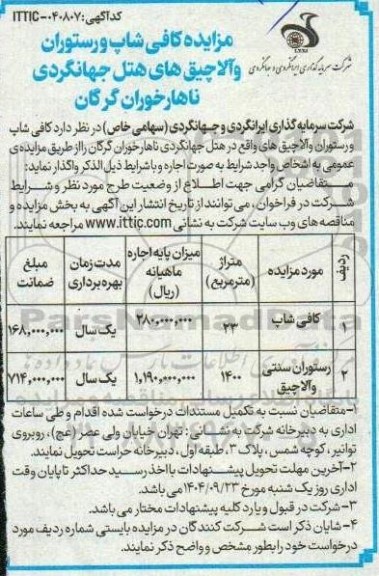 کد آگهی: ITTIC-۰۴۰۸۰۷
مزایده کافی شاپ و رستوران
وآلاچیق های هتل جهانگردی
ناهارخوران گرگان
شرکت سرمایه گذاری ایرانگردی و جهانگردی
شرکت سرمایه گذاری ایرانگردی و جهانگردی (سهامی خاص) در نظر دارد کافی شاپ
و رستوران وآلاچیق های واقع در هتل جهانگردی ناهارخوران گرگان را از طریق مزایده ی
عمومی به اشخاص واجد شرایط به صورت اجاره و با شرایط ذیل الذکر واگذار نماید:
متقاضیان گرامی جهت اطلاع از وضعیت طرح مورد نظر و شرایط
شرکت در فراخوان، می توانند از تاریخ انتشار این آگهی به بخش مزایده و
مناقصه های وب سایت شرکت به نشانی www.ittic.com مراجعه نمایند.
ردیف	مورد مزایده	متراژ (مترمربع)	میزان پایه اجاره ماهیانه (ریال)	مدت زمان بهره برداری	مبلغ ضمانت
۱	کافی شاپ	۲۳	۲۸۰,۰۰۰,۰۰۰	یک سال	۱۶۸,۰۰۰,۰۰۰
۲	رستوران سنتی وآلاچیق	۱۴۰۰	۱,۱۹۰,۰۰۰,۰۰۰	یک سال	۷۱۴,۰۰۰,۰۰۰
۱-متقاضیان نسبت به تکمیل مستندات درخواست شده اقدام و طی ساعات
اداری به دبیرخانه شرکت به نشانی: تهران خیابان ولی عصر (عج)، روبروی
توانیر، کوچه شمس، پلاک ۳، طبقه اول، دبیرخانه حراست تحویل نمایند.
۲-آخرین مهلت تحویل پیشنهادات با اخذ رسید حداکثر تا پایان وقت
اداری روز یک شنبه مورخ ۱۴۰۴/۰۹/۲۳ می باشد.
۳-شرکت در قبول و یا رد کلیه پیشنهادات مختار می باشد.
۴-شایان ذکر است شرکت کنندگان در مزایده بایستی شماره ردیف مورد
درخواست خود را بطور مشخص و واضح ذکر نمایند.